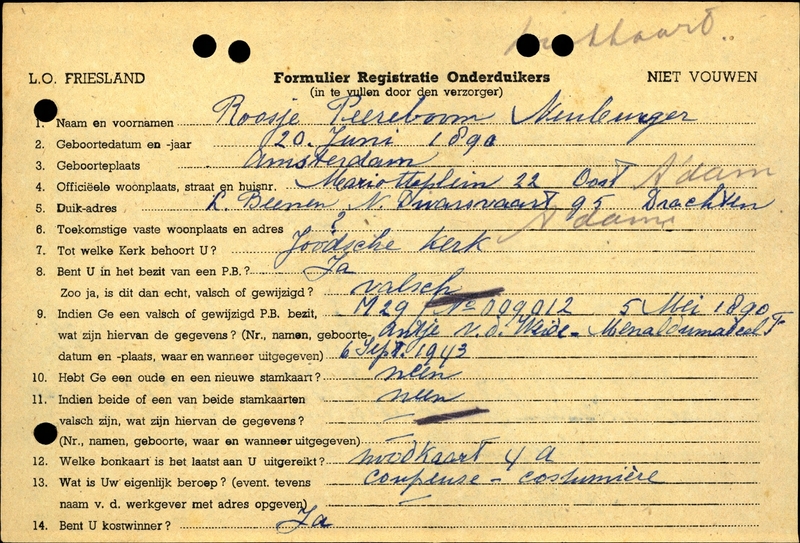 L.O. FRIESLAND Formulier Registratie Onderduikers NIET VOUWEN
(in te vullen door den verzorger)
1. Naam en voornamen Roosje Peereboom Neuburger
2. Geboortedatum en -jaar 20. Juni 1890
3. Geboorteplaats Amsterdam
4. Officiëele woonplaats, straat en huisnr. Mariotteplein 22 Oost A'dam
5. Duik-adres L. Beenen N. Dwarsvaart 95 Drachten
6. Toekomstige vaste woonplaats en adres ? A'dam
7. Tot welke Kerk behoort U? Joodsche Kerk
8. Bent U in het bezit van een P.B.? Ja
Zoo ja, is dit dan echt, valsch of gewijzigd? valsch
9. Indien Ge een valsch of gewijzigd P.B. bezit, M29 No 009012 5 Mei 1890
wat zijn hiervan de gegevens? (Nr., namen, geboorte- Antje v.d. Weide - Menaldumadeel F.
datum en -plaats, waar en wanneer uitgegeven) 6 Sept. 1943
10. Hebt Ge een oude en een nieuwe stamkaart? neen
11. Indien beide of een van beide stamkaarten neen
valsch zijn, wat zijn hiervan de gegevens? —
(Nr., namen, geboorte, waar en wanneer uitgegeven) —
12. Welke bonkaart is het laatst aan U uitgereikt? noodkaart 4 A
13. Wat is Uw eigenlijk beroep? (event. tevens coupeuse - costumière
naam v. d. werkgever met adres opgeven) —
14. Bent U kostwinner? Ja